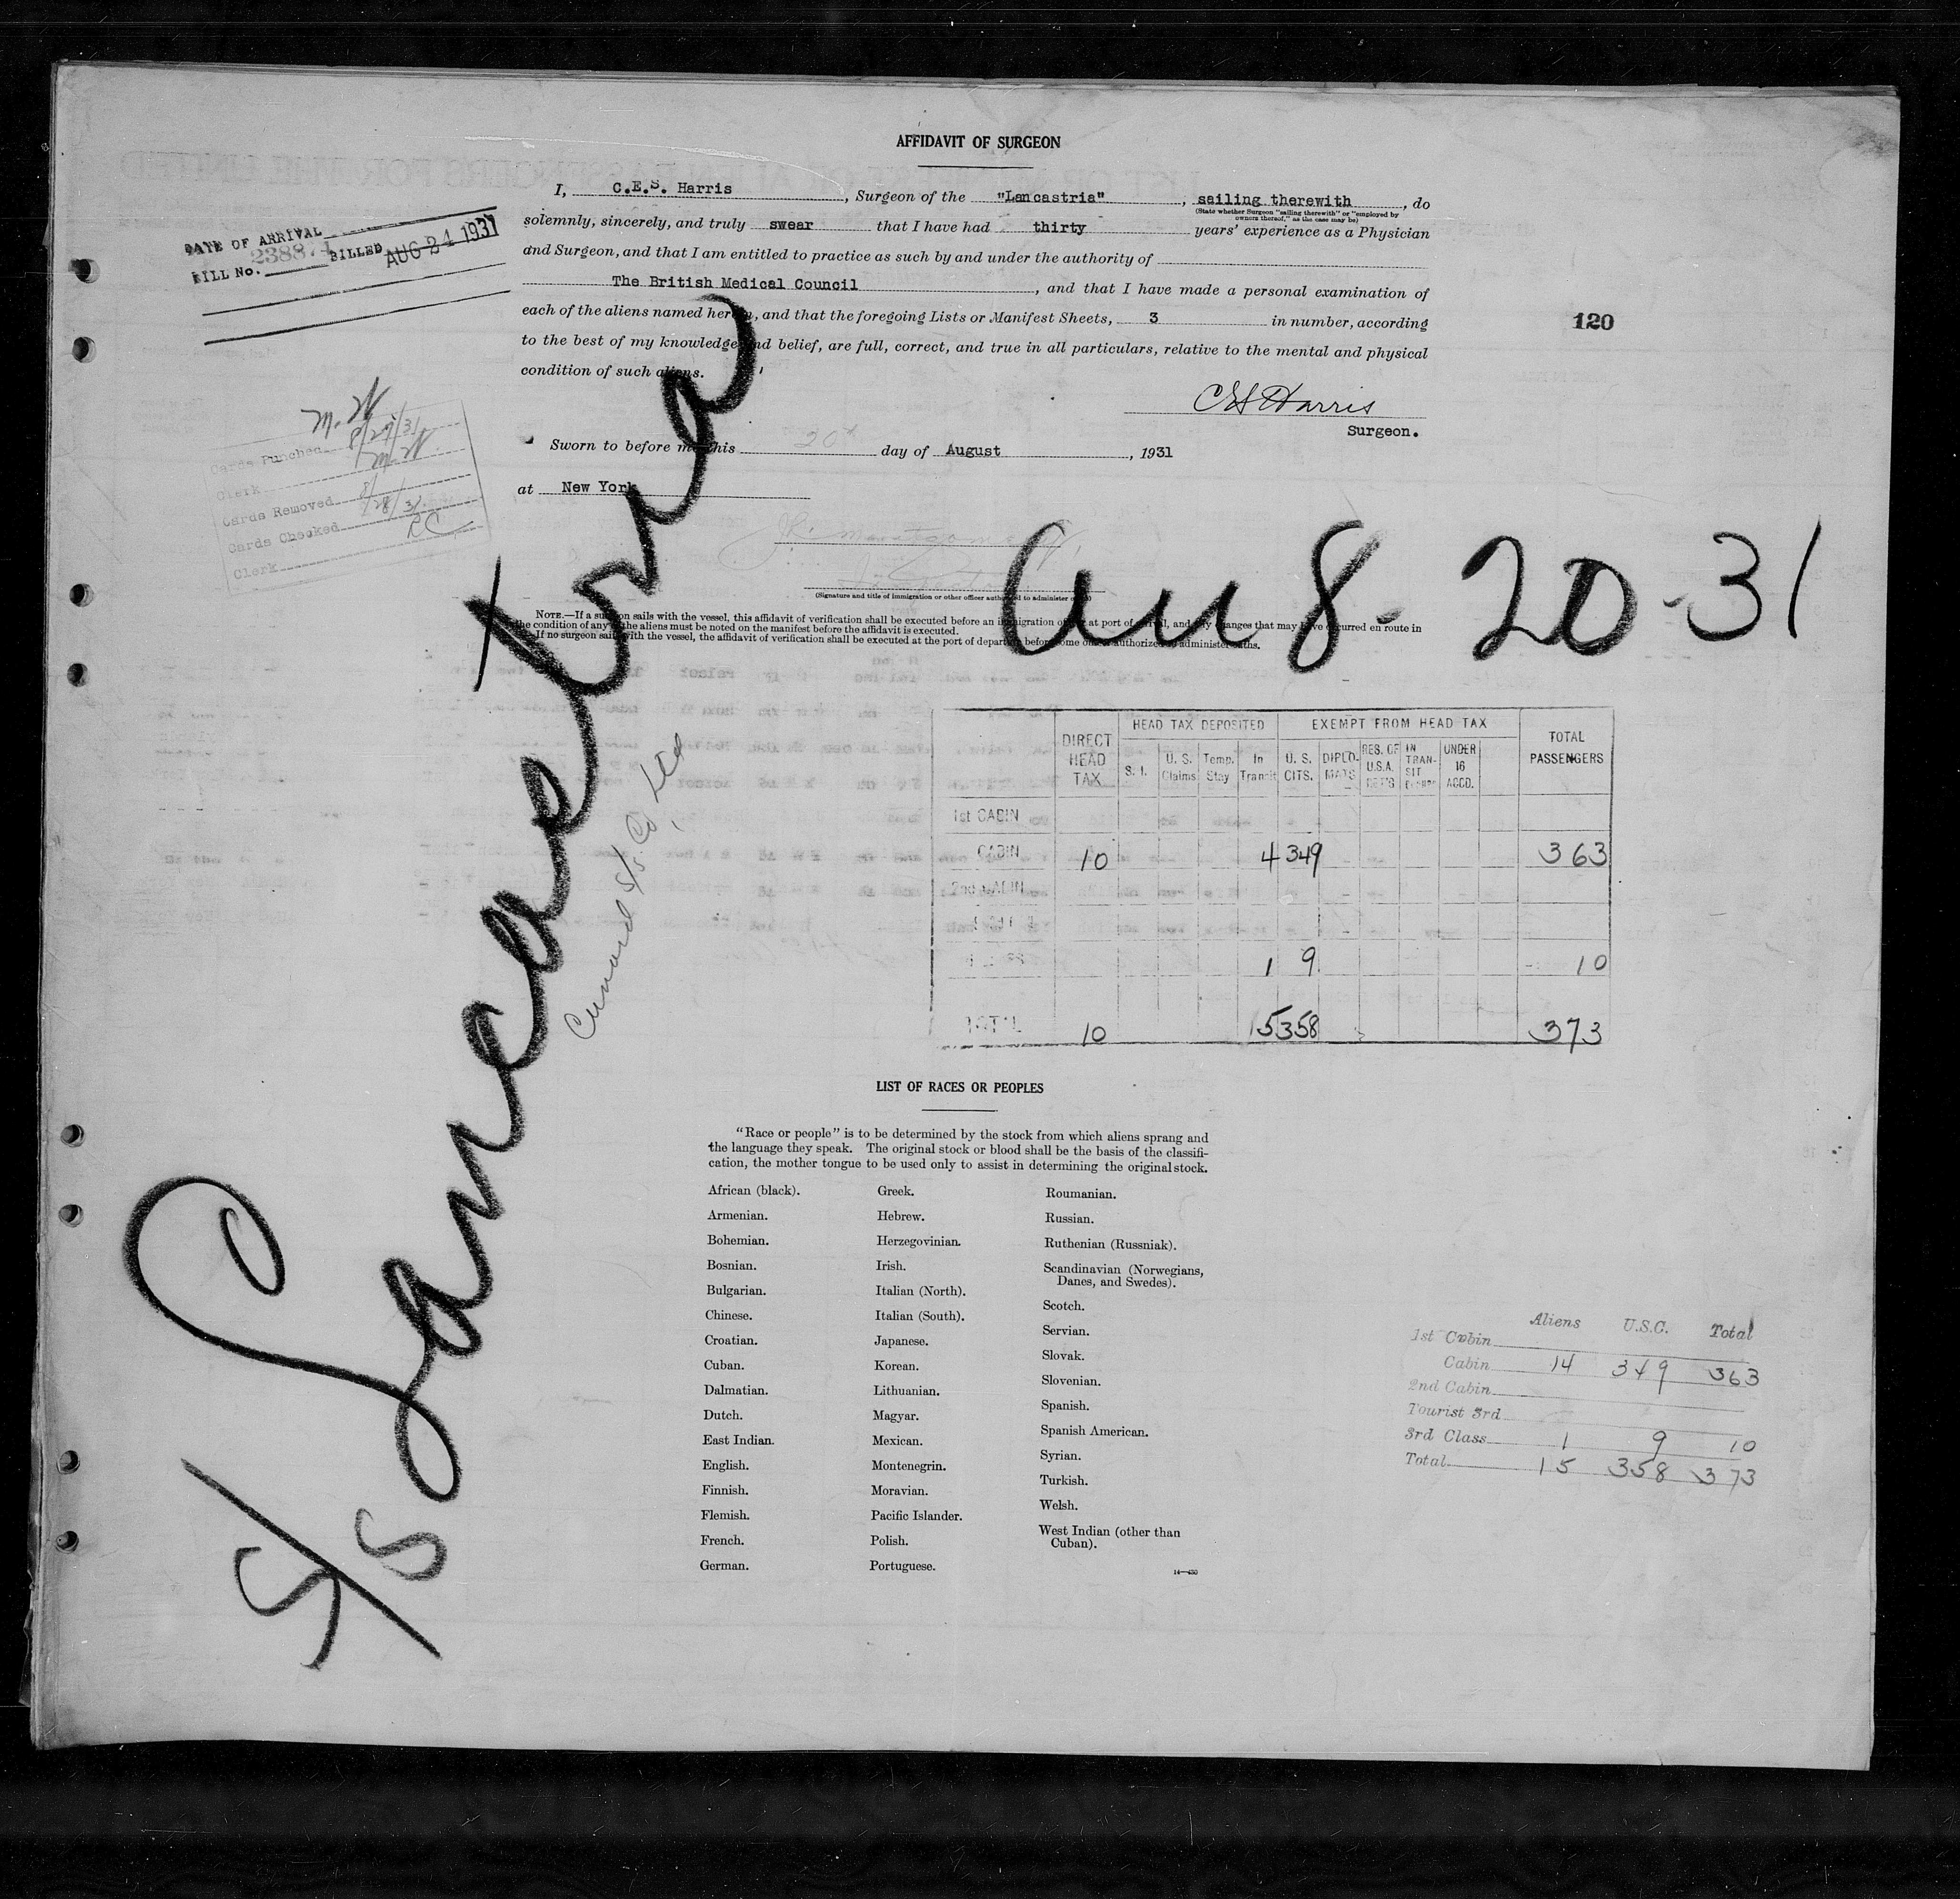 AFFIDAVIT OF SURGEON
I, C.E.S. Harris, Surgeon of the "Lancastria", sailing therewith, do
(State whether Surgeon "sailing therewith" or "employed by owners thereof," as the case may be)
solemnly, sincerely, and truly swear that I have had thirty years' experience as a Physician
and Surgeon, and that I am entitled to practice as such by and under the authority of
The British Medical Council, and that I have made a personal examination of
each of the aliens named herein, and that the foregoing Lists or Manifest Sheets, 3 in number, according
to the best of my knowledge and belief, are full, correct, and true in all particulars, relative to the mental and physical
condition of such aliens.
DATE OF ARRIVAL
BILL No. 238874 BILLED AUG 24 1931
120
CES Harris
Surgeon.
M.W
Cards Punched 8/27/31
Clerk M.W
Cards Removed 8/28/31
Cards Checked RC
Clerk
Sworn to before me this 20th day of August, 1931
at New York
Inspector
(Signature and title of immigration or other officer authorized to administer oaths)
Aug - 20 - 31
NOTE.—If a surgeon sails with the vessel, this affidavit of verification shall be executed before an immigration officer at port of arrival, and any changes that may have occurred en route in
the condition of any of the aliens must be noted on the manifest before the affidavit is executed.
If no surgeon sails with the vessel, the affidavit of verification shall be executed at the port of departure before some officer authorized to administer oaths.
S/S Lancastria
Cunard S/S. Co Ltd
DIRECT HEAD TAX HEAD TAX DEPOSITED EXEMPT FROM HEAD TAX TOTAL PASSENGERS
S. I. U. S. Claims Temp. Stay In Transit U. S. CITS. DIPLO-MATS RES. OF U.S.A. IN TRAN-SIT UNDER 16 ACCD.
1st CABIN
CABIN 10 4 349 363
2nd CABIN
1 9 10
TOTAL 10 15 358 373
LIST OF RACES OR PEOPLES
"Race or people" is to be determined by the stock from which aliens sprang and
the language they speak. The original stock or blood shall be the basis of the classifi-
cation, the mother tongue to be used only to assist in determining the original stock.
African (black).
Armenian.
Bohemian.
Bosnian.
Bulgarian.
Chinese.
Croatian.
Cuban.
Dalmatian.
Dutch.
East Indian.
English.
Finnish.
Flemish.
French.
German.
Greek.
Hebrew.
Herzegovinian.
Irish.
Italian (North).
Italian (South).
Japanese.
Korean.
Lithuanian.
Magyar.
Mexican.
Montenegrin.
Moravian.
Pacific Islander.
Polish.
Portuguese.
Roumanian.
Russian.
Ruthenian (Russniak).
Scandinavian (Norwegians,
Danes, and Swedes).
Scotch.
Servian.
Slovak.
Slovenian.
Spanish.
Spanish American.
Syrian.
Turkish.
Welsh.
West Indian (other than
Cuban).
14—430
Aliens U.S.C. Total
1st Cabin
Cabin 14 349 363
2nd Cabin
Tourist 3rd
3rd Class 1 9 10
Total 15 358 373